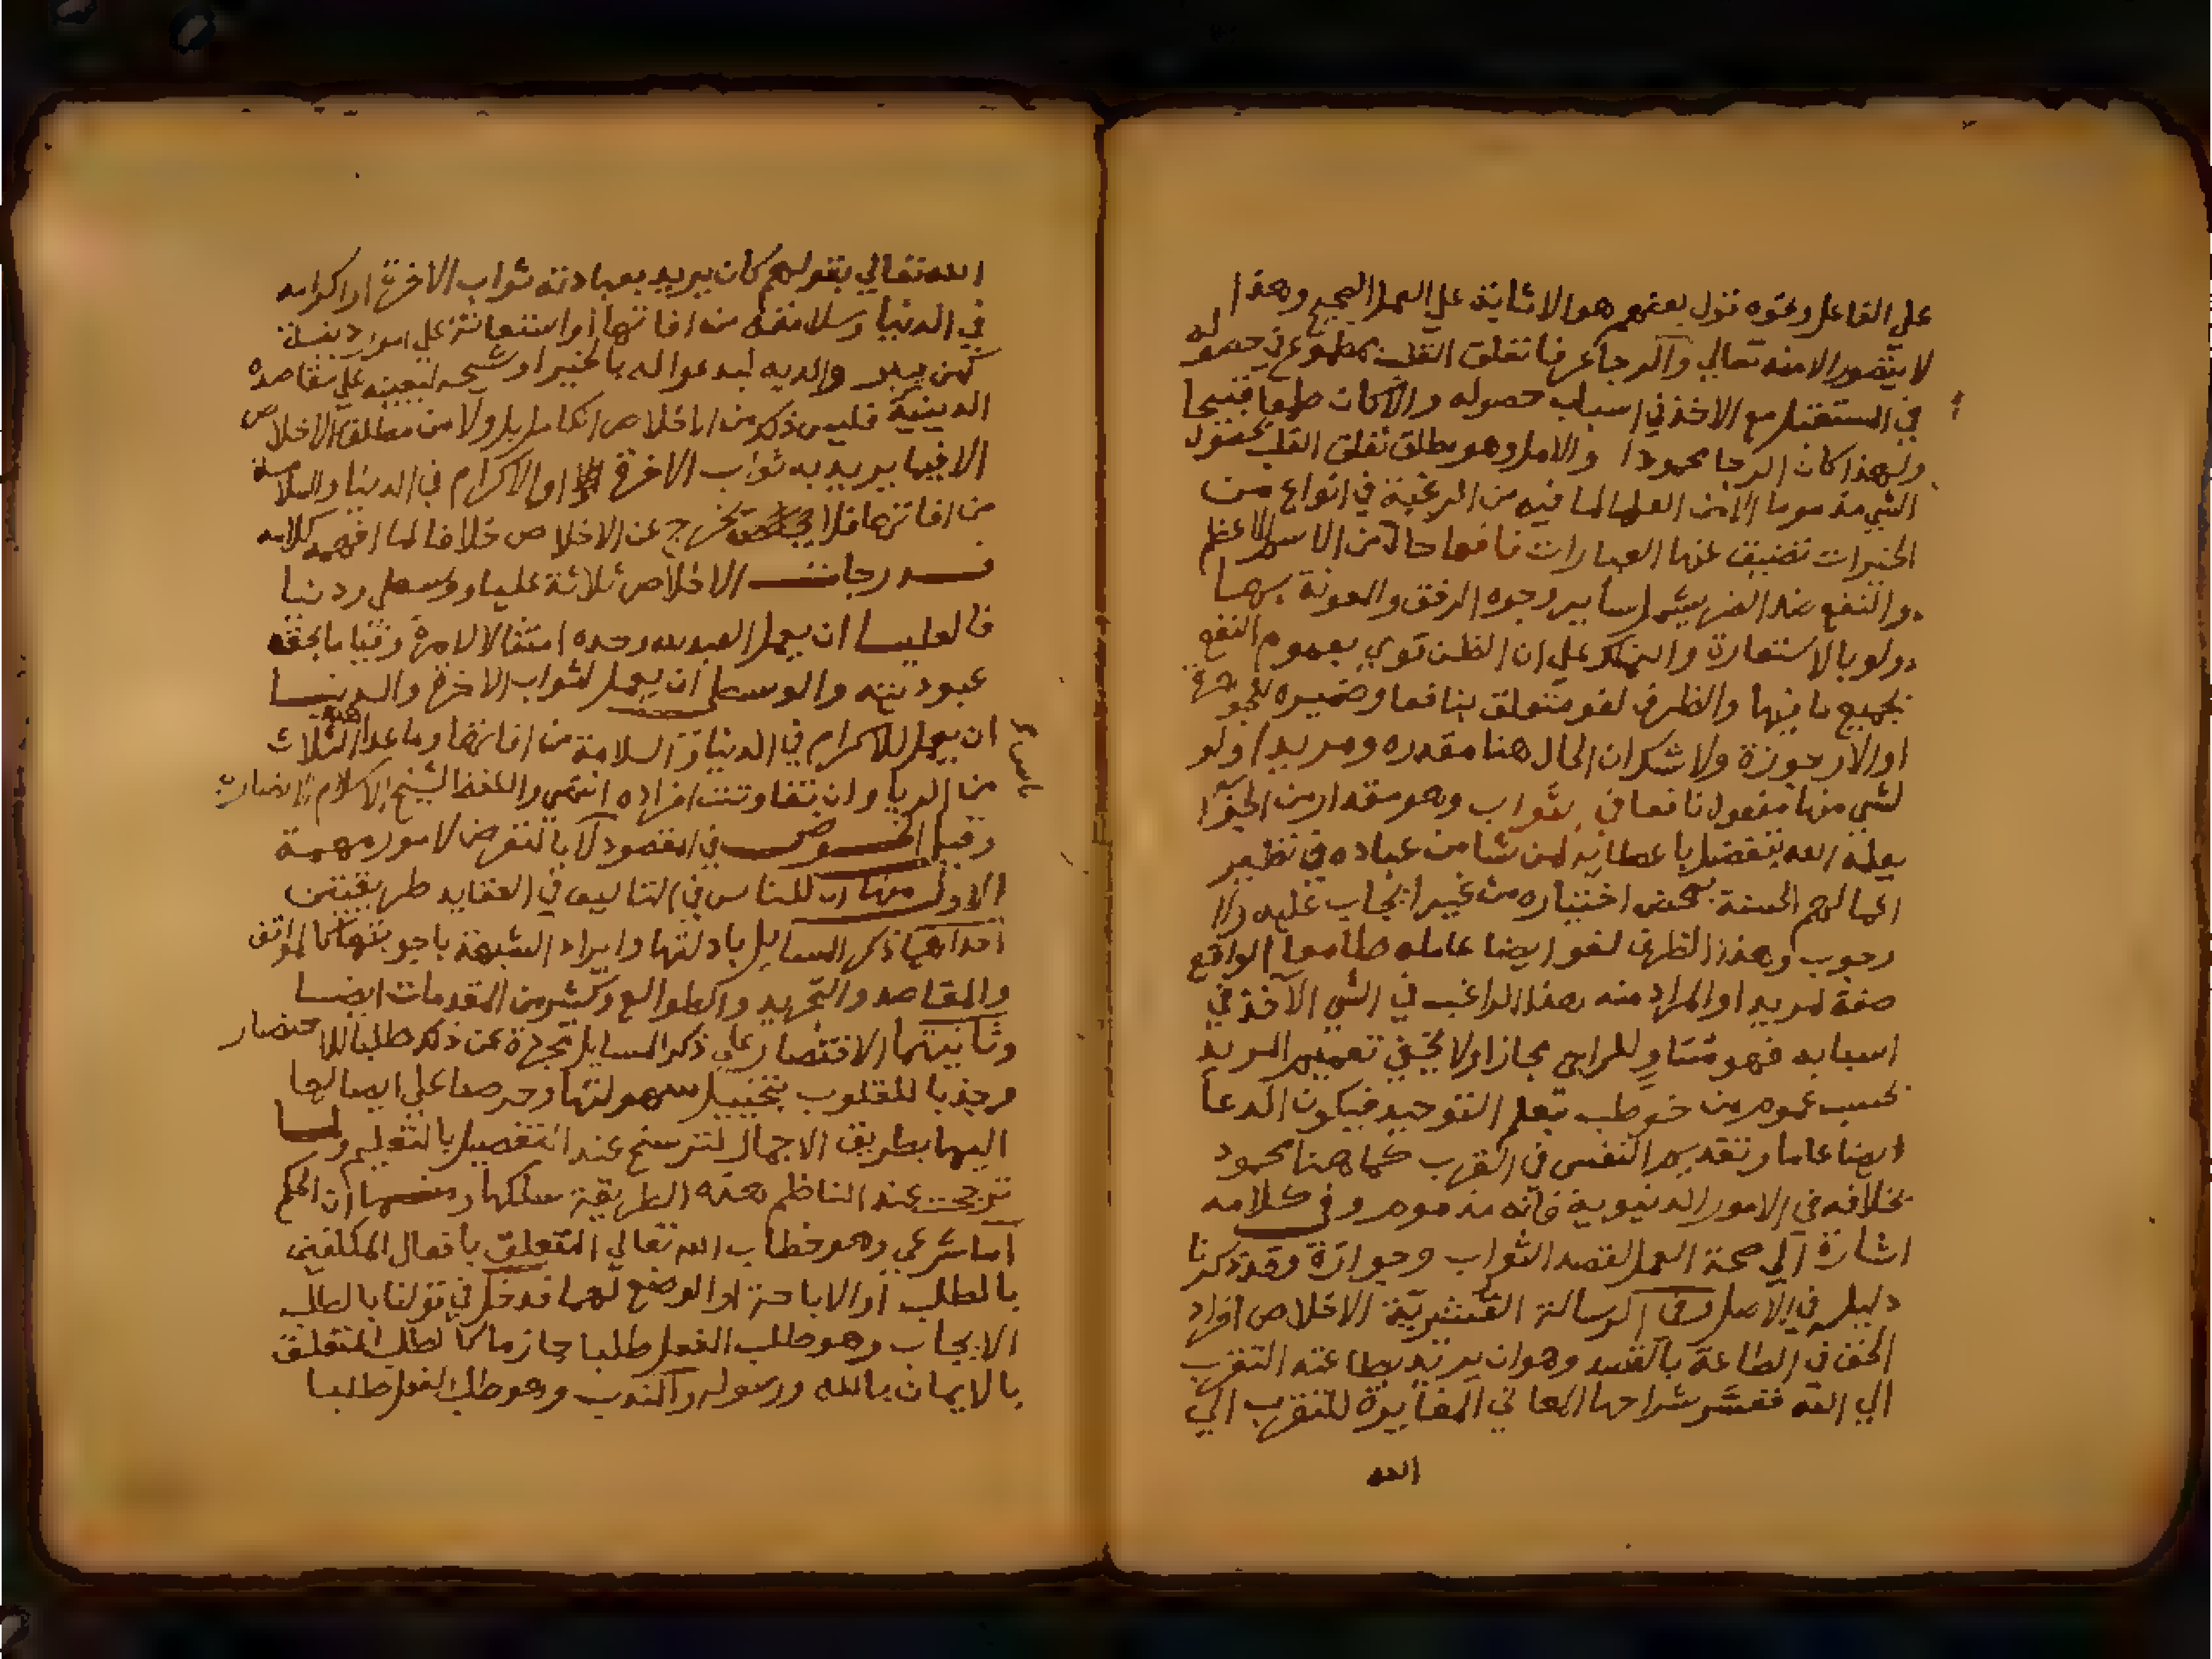 علي الفاعل ونحوه قول بعضهم هو الاثابة علي العمل الصحيح وهذا
لا يتصور الا منه تعالي والرجا عرفا تعلق القلب بمطموع في حصوله
في المستقبل مع الاخذ في اسباب حصوله والا كان طمعا قبيحا
ولهذا كان الرجا محمودا والامل وهو مطلق تعلق القلب بحصول
الشي مذموما الا من العلما لما فيه من الرغبة في انواع من
الخيرات تضيق عنها العبارات نافعا حال من الاسم الاعظم
والنفع ضد الضر يشمل ساير وجوه الرفق والمعونة بهما
ولو بالاستعارة والتهكم علي ان الظن قوي بعموم النفع
بجميع ما فيها والظرف لغو متعلق بنافعا وضميره للجوهرة
او الارجوزة ولا شك ان الحال هنا مقدره ومريدا ولو
لشي منها مفعول نافعا في ثواب وهو مقدار من الجزا
يعلمه الله يتفضل باعطائه لمن شا من عباده في نظير
اعمالهم الحسنة بمحض اختياره من غير ايجاب عليه ولا
وجوب وهذا الظرف لغو ايضا عامله طامعا الواقع
صفة لمريد او المراد منه هذا الراغب في الشي الآخذ في
اسبابه فهو مساو للراجي مجازا ولا يخفي تعميم المريد
بحسب عموم من خوطب بعلم التوحيد فيكون الدعا
ايضا عاما وتقديم النفس في القرب كما هنا محمود
بخلافه في الامور الدنيوية فانه مذموم وفي كلامه
اشارة الي صحة العمل لقصد الثواب وجوازه وقد ذكرنا
دليله في الاصل وفي الرسالة القشيرية الاخلاص افراد
الحق في الطاعة بالقصد وهو ان يريد بطاعته التقرب
الي الله ففسر شراحها المعاني المغايرة للتقرب الي
الله
الله تعالي بقولهم كان يريد بعبادته ثواب الاخرة او اكرامه
في الدنيا وسلامته من افاتها او استعانة علي امور دينية
كمن يبر والديه ليدعوا له بالخير او شيخه ليعينه علي مقاصده
الدينية فليس ذلك من الاخلاص الكامل بل ولا من مطلق الاخلاص
الا فيما يريد به ثواب الاخرة او الاكرام في الدنيا والسلامة
من افاتها فلا يخرج عن الاخلاص خلافا لما افهمه كلامه
فدرجات الاخلاص ثلاثة عليا ووسطي ودنيا
فالعليا ان يعمل العبد لله وحده امتثالا لامره وقياما بحق
عبوديته والوسطي ان يعمل لثواب الاخرة والدنيا
ان يعمل للاكرام في الدنيا والسلامة من افاتها وما عدا هذه الثلاث
من الريا وان تفاوتت افراده انتهي واللفظ لشيخ الاسلام الانصاري
وقبل الخوض في المقصود لا بد بالتعرض لامور مهمة
الاول منها ان للناس في التاليف في العقايد طريقتين
احداهما ذكر المسايل بادلتها وايراد الشبهة باجوبتها كالمواقف
والمقاصد والتمهيد والطوالع وكثير من المقدمات ايضا
وثانيتهما الاقتصار علي ذكر المسايل مجردة عن ذكر طلبا للاختصار
وجذبا للقلوب بتخييل سهولتها وحرصا علي ايصالها
اليها بطريق الاجمال لترسخ عند التفصيل بالتعليم ولما
ترجحت عند الناظم هذه الطريقة سلكها ومنها ان الحكم
اما شرعي وهو خطاب الله تعالي المتعلق بافعال المكلفين
بالطلب او الاباحة او الوضع لهما فدخل في قولنا بالطلب
الايجاب وهو طلب الفعل طلبا جازما كالطلب المتعلق
بالايمان بالله ورسوله والندب وهو طلب الفعل طلبا